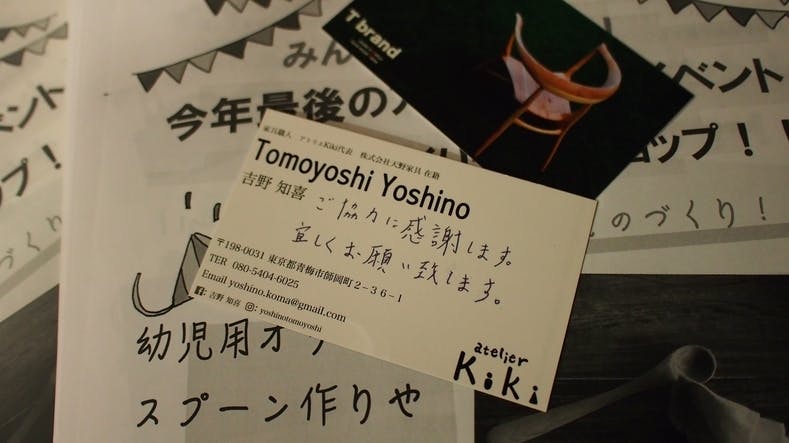 T brand
みん
イベント
今年最後の
ョップ！！
のづくり！
ベント
ップ！
家具職人　アトリエKiki代表　株式会社天野家具 在籍
Tomoyoshi Yoshino
吉野 知喜
ご協力に感謝します。
宜しくお願い致します。
〒198-0031 東京都青梅市師岡町２－３６－１
TER 080-5404-6025
Email yoshino.koma@gmail.com
吉野 知喜 : yoshinotomoyoshi
atelier
KiKi
幼児用オ
スプーン作りや